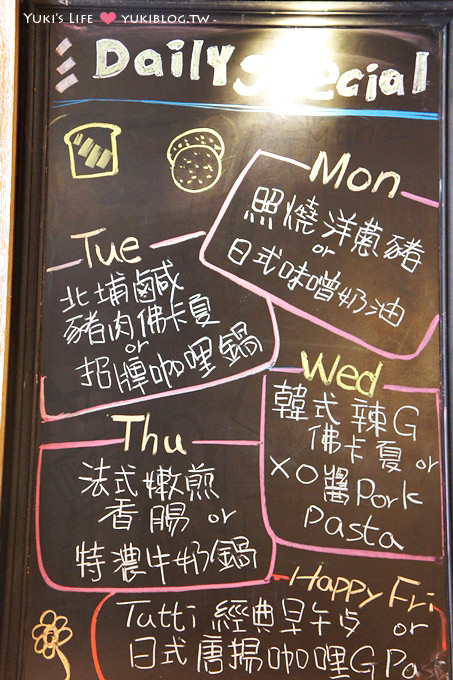 YUKI'S LIFE ❤ YUKIBLOG.TW -
Daily Special
Mon
照燒洋蔥豬
or
日式味噌奶油
Tue
北埔鹹
豬肉佛卡夏
or
招牌咖哩鍋
Wed
韓式辣G
佛卡夏 or
XO醬Pork
Pasta
Thu
法式嫩煎
香腸 or
特濃牛奶鍋
Happy Fri
Tutti 經典早午
or
日式唐揚咖哩G Pas